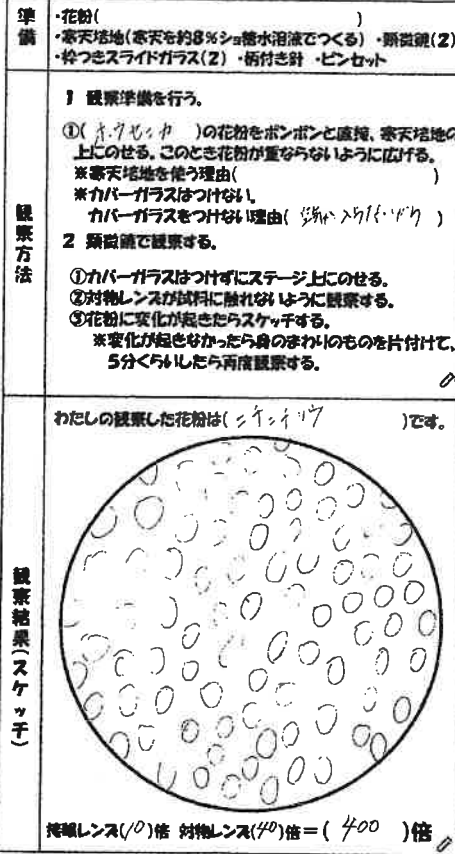 準備
・花粉(　　　)
・寒天培地(寒天を約8%ショ糖水溶液でつくる) ・顕微鏡(2)
・枠つきスライドガラス(2) ・柄付き針 ・ピンセット
観察方法
1 観察準備を行う。
①(ホウセンカ)の花粉をポンポンと直接、寒天培地の
上にのせる。このとき花粉が重ならないように広げる。
※寒天培地を使う理由(　　　)
※カバーガラスはつけない。
カバーガラスをつけない理由(　　　)
2 顕微鏡で観察する。
①カバーガラスはつけずにステージ上にのせる。
②対物レンズが試料に触れないように観察する。
③花粉に変化が起きたらスケッチする。
※変化が起きなかったら身のまわりのものを片付けて、
5分くらいしたら再度観察する。
観察結果(スケッチ)
わたしの観察した花粉は(ニチニチソウ)です。
接眼レンズ(10)倍 対物レンズ(40)倍=(400)倍